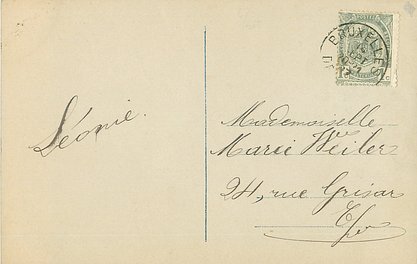 Léonie.
BRUXELLES
Mademoiselle
Marie Weiler
24, rue Grisar